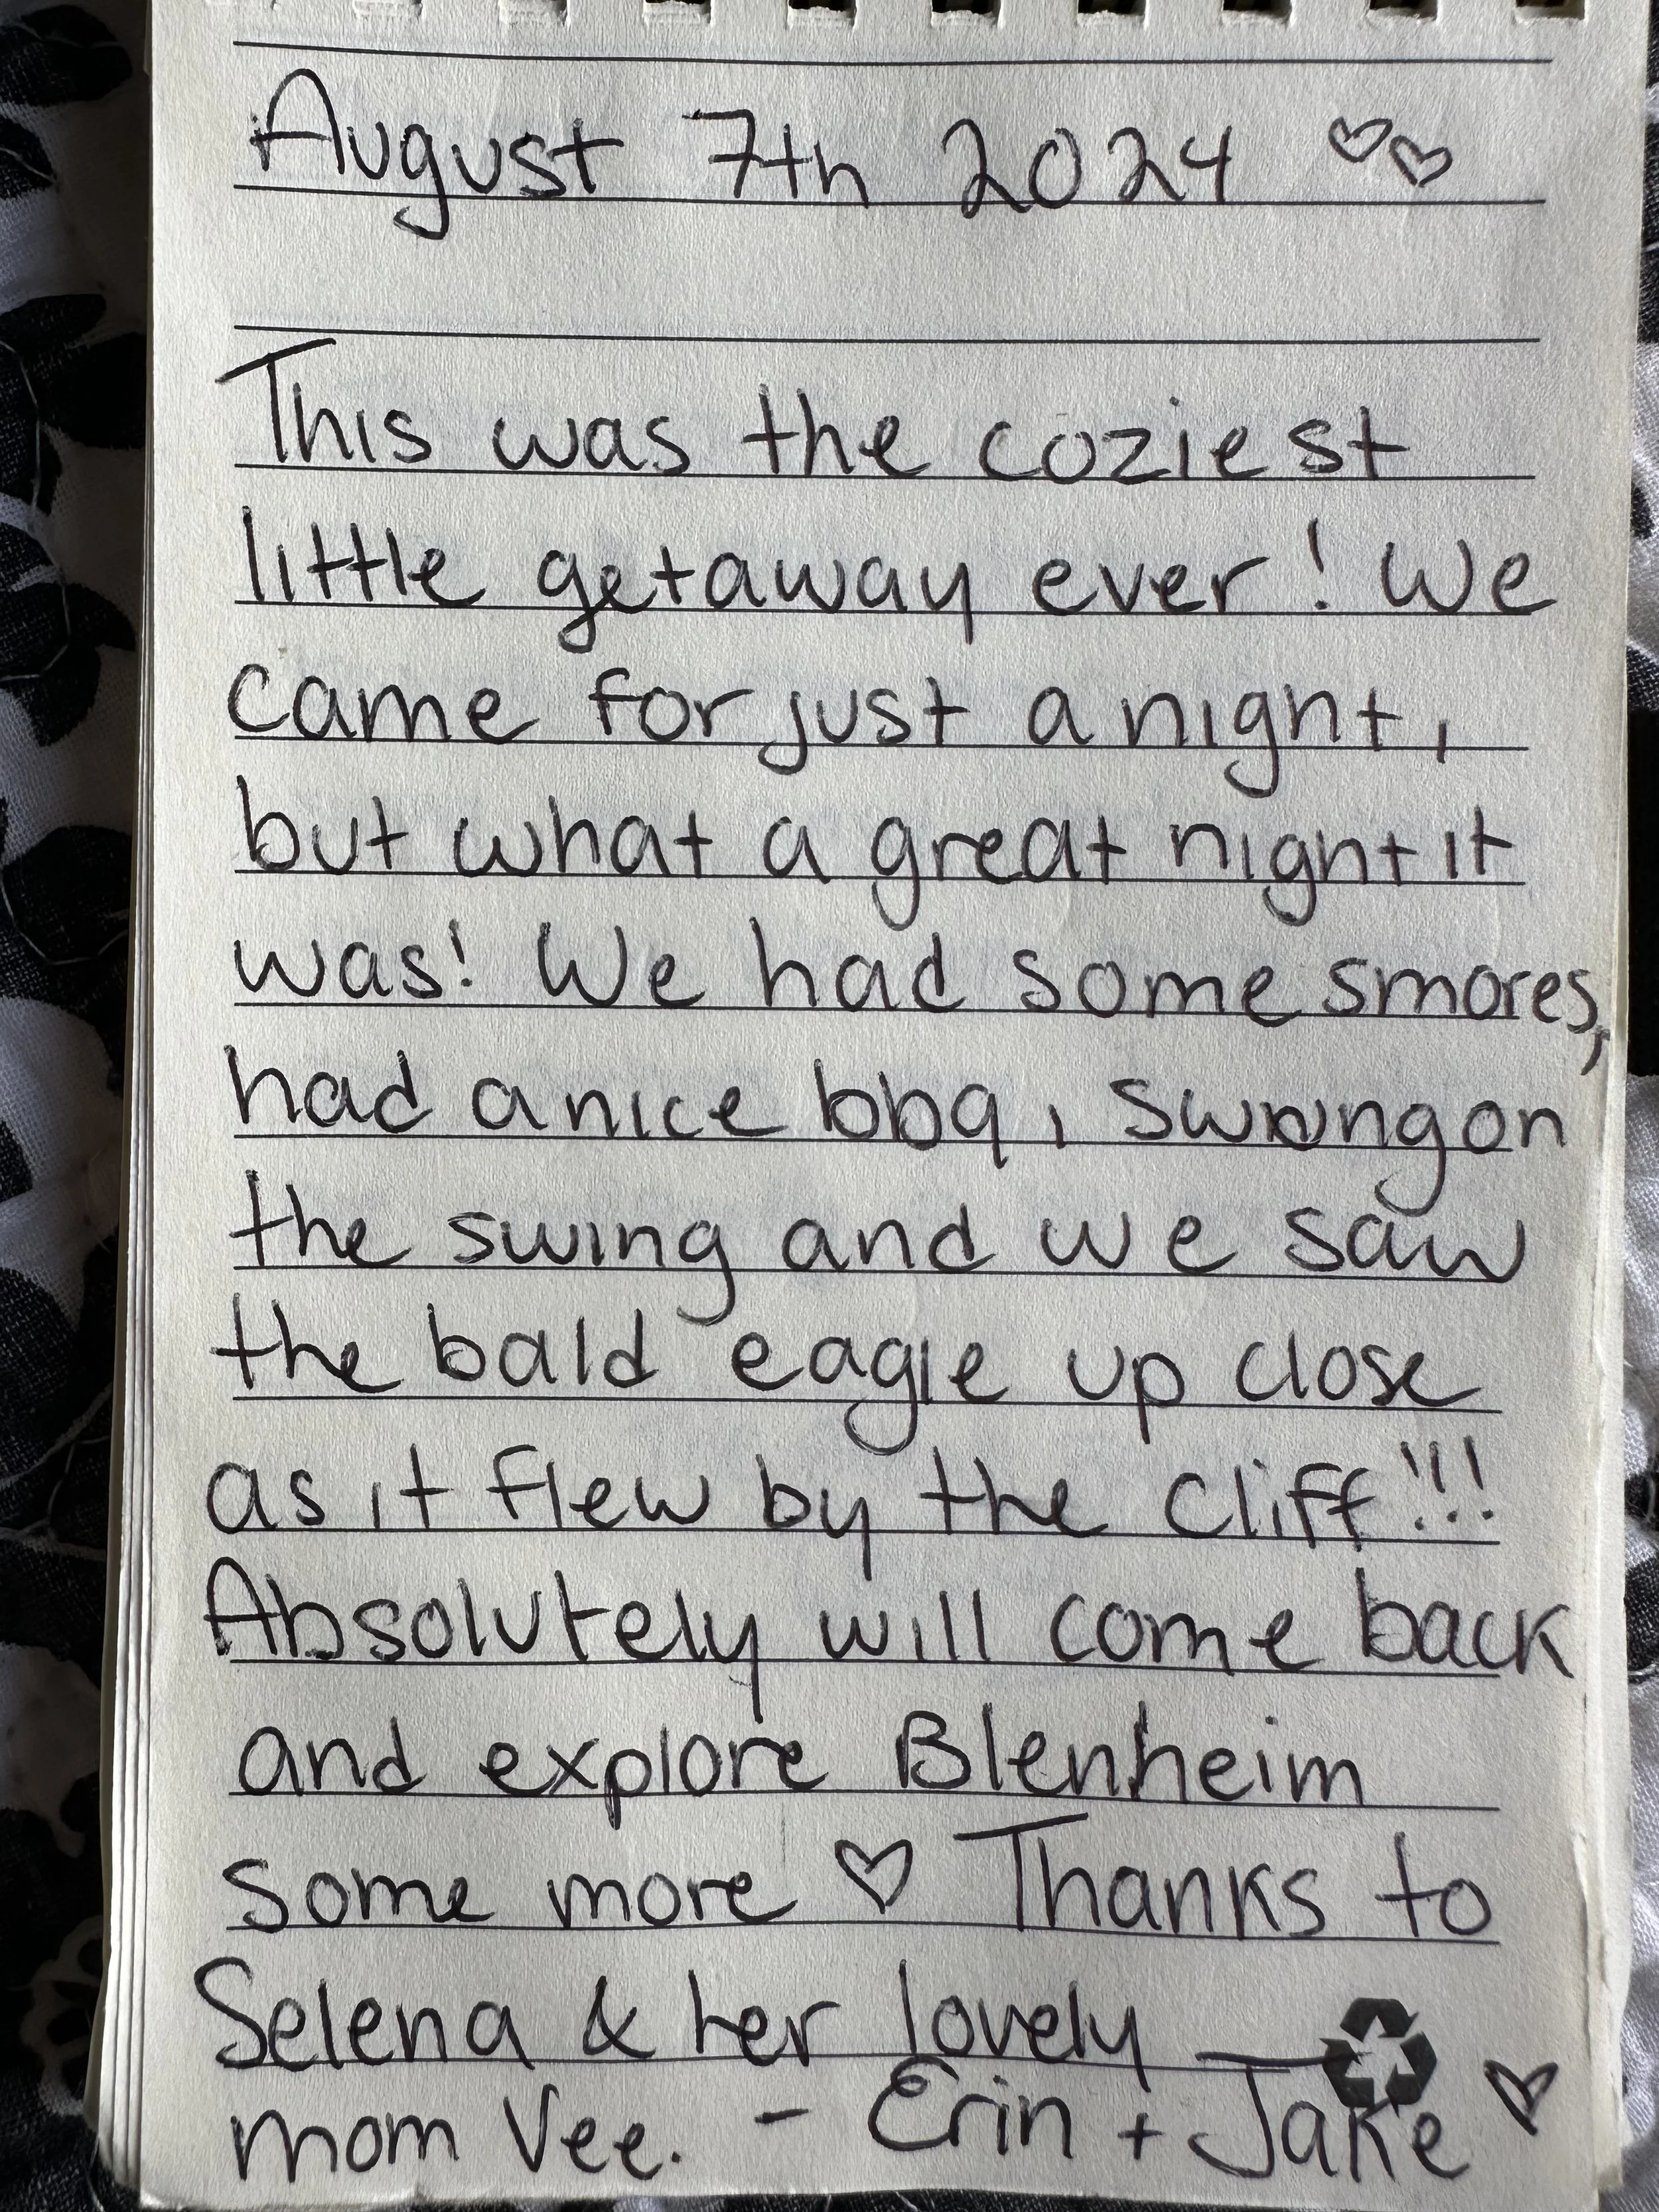 August 7th 2024 ♡♡
This was the coziest
little getaway ever! We
came for just a night,
but what a great night it
was! We had some smores,
had a nice bbq, swung on
the swing and we saw
the bald eagle up close
as it flew by the cliff!!!
Absolutely will come back
and explore Blenheim
some more ♡ Thanks to
Selena & her lovely
mom Vee. - Erin + Jake ♡